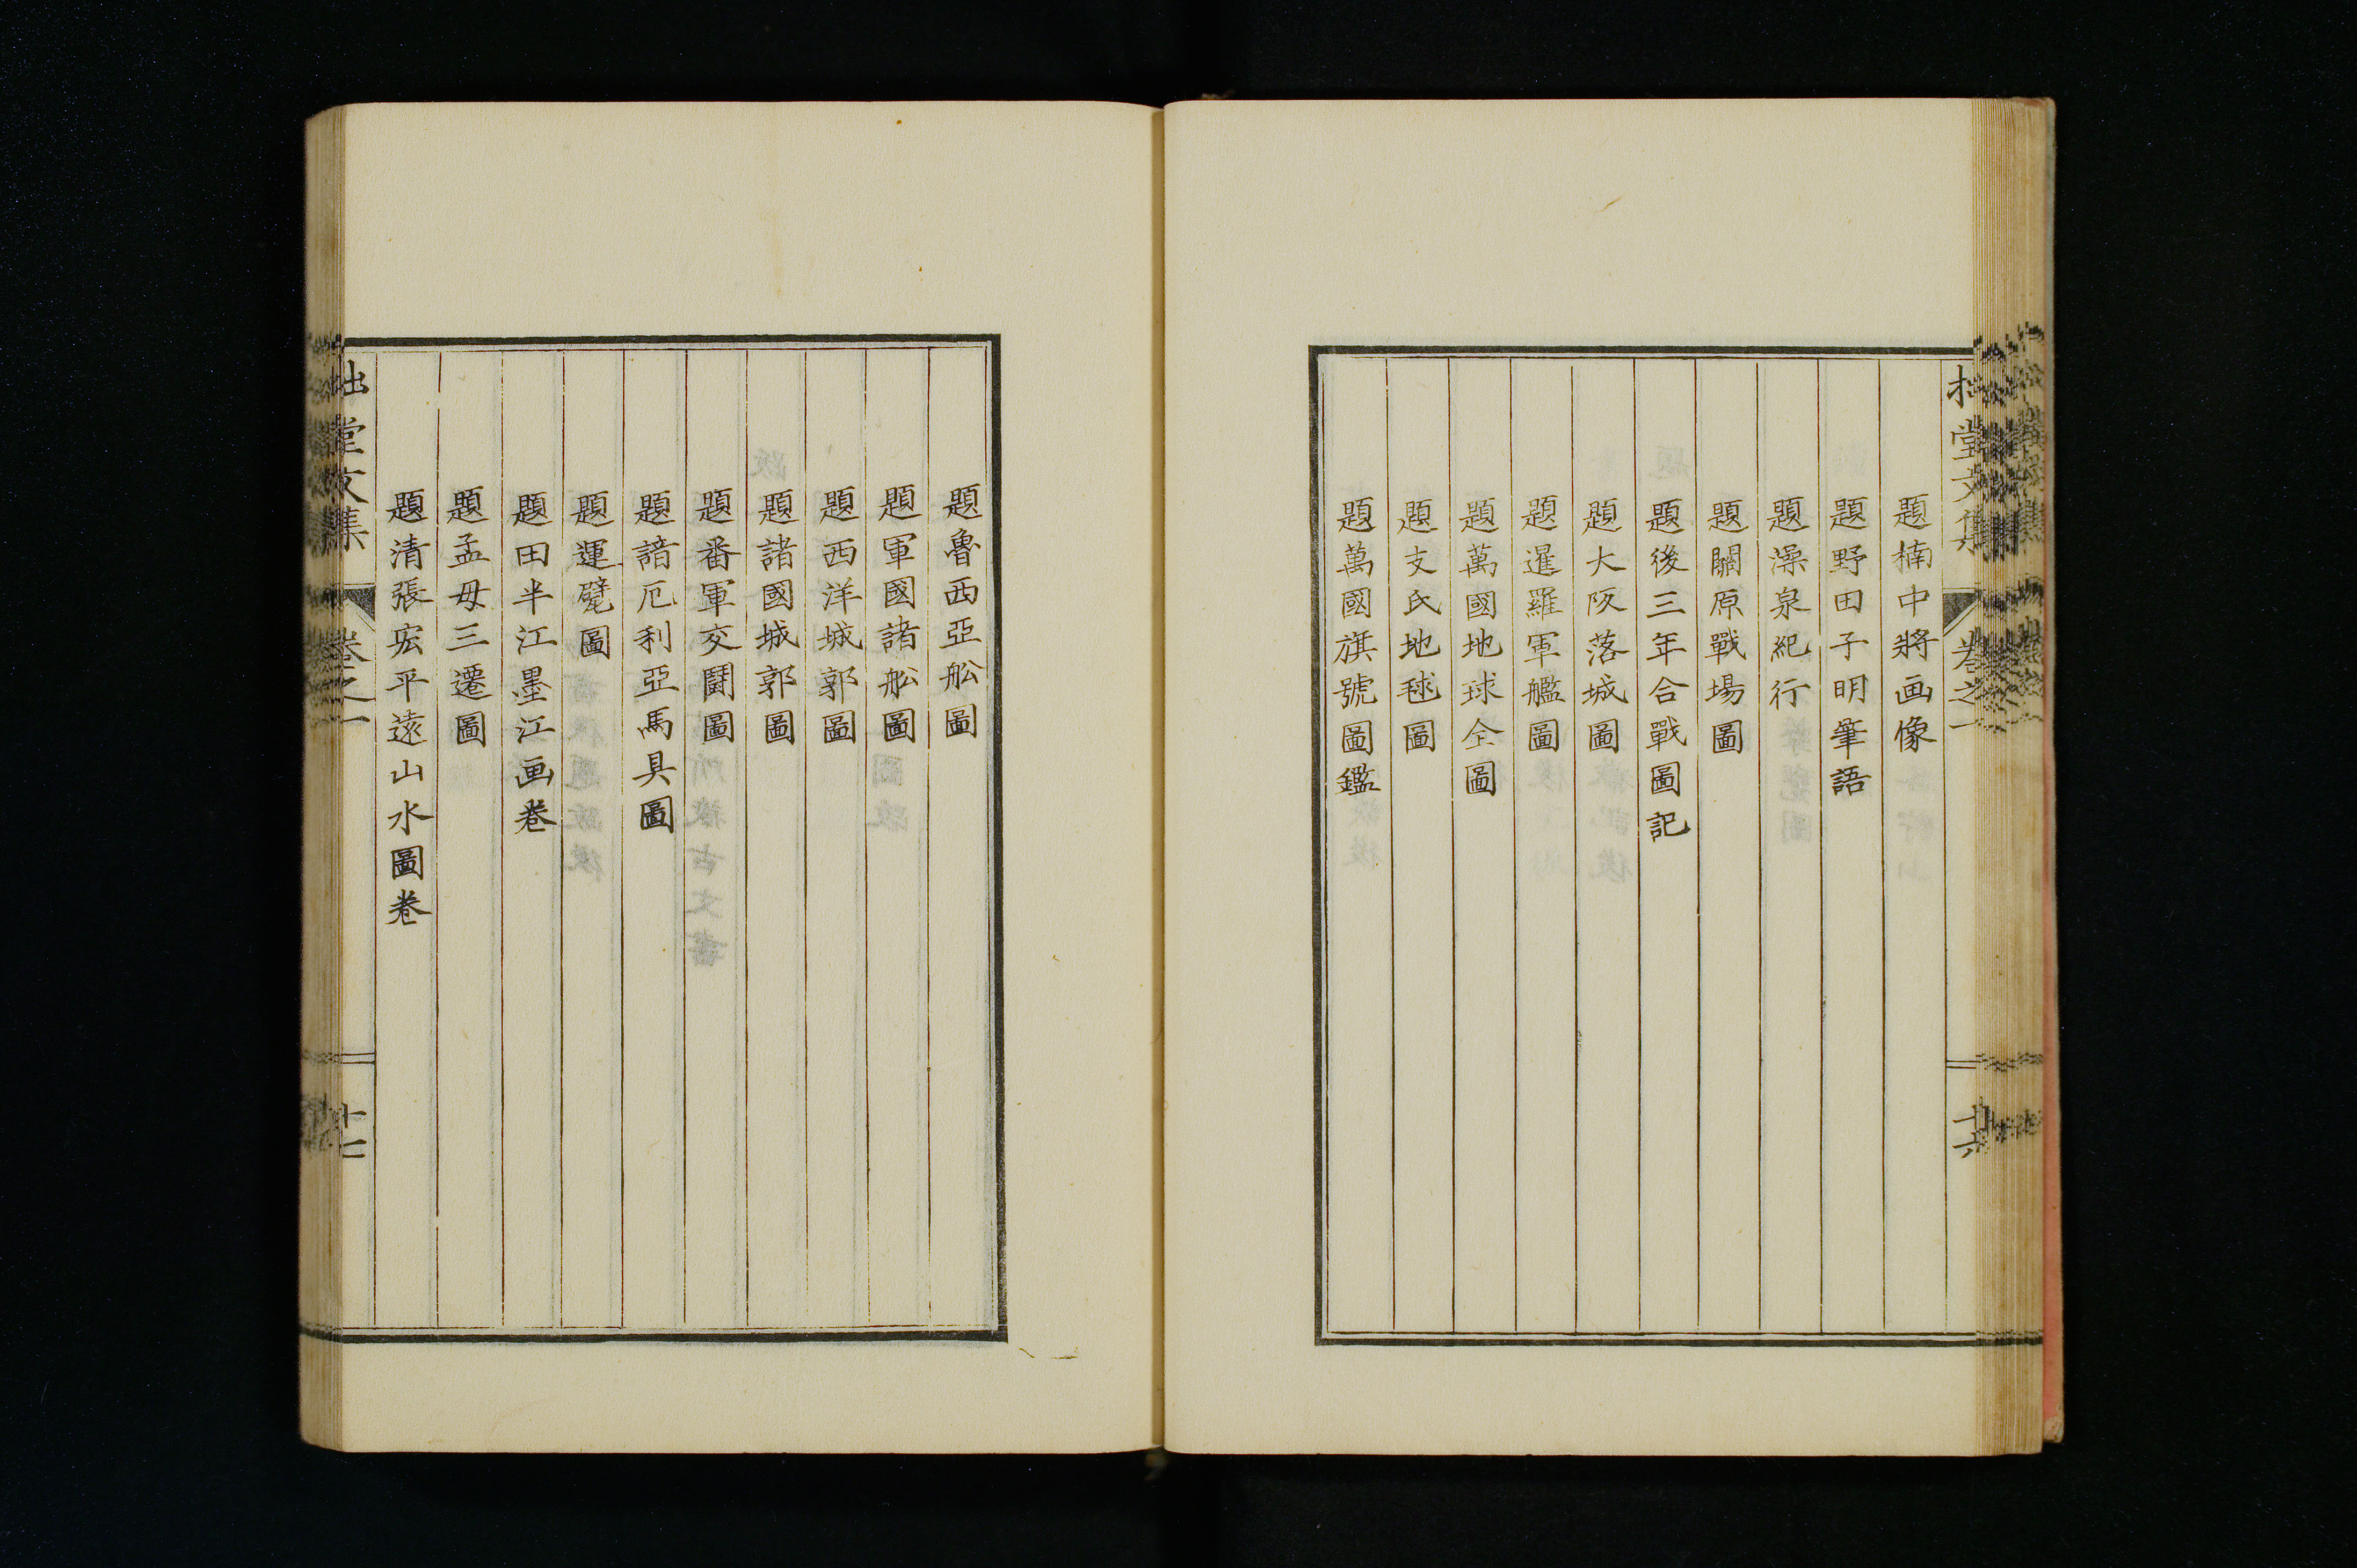 拙堂文集 卷之一 十六
題楠中將画像
題野田子明筆語
題澡泉紀行
題關原戰場圖
題後三年合戰圖記
題大阪落城圖
題暹羅軍艦圖
題萬國地球仝圖
題支氏地毬圖
題萬國旗號圖鑑
題魯西亞舩圖
題軍國諸舩圖
題西洋城郭圖
題諸國城郭圖
題番軍交鬪圖
題諳厄利亞馬具圖
題運甓圖
題田半江墨江画卷
題孟母三遷圖
題清張宏平遠山水圖卷
拙堂文集 卷之一 十七